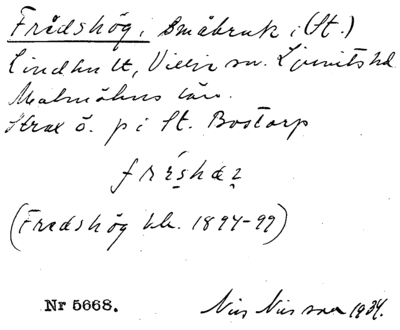 Fridshög, Småbruk i (St.)
Lindhult, Villie sn. Ljunits hd
Malmöhus län.
Strax ö. på St. Bostorp
(Fredshög kk. 1894-99)
Nr 5668. Nils Nilsson 1934.